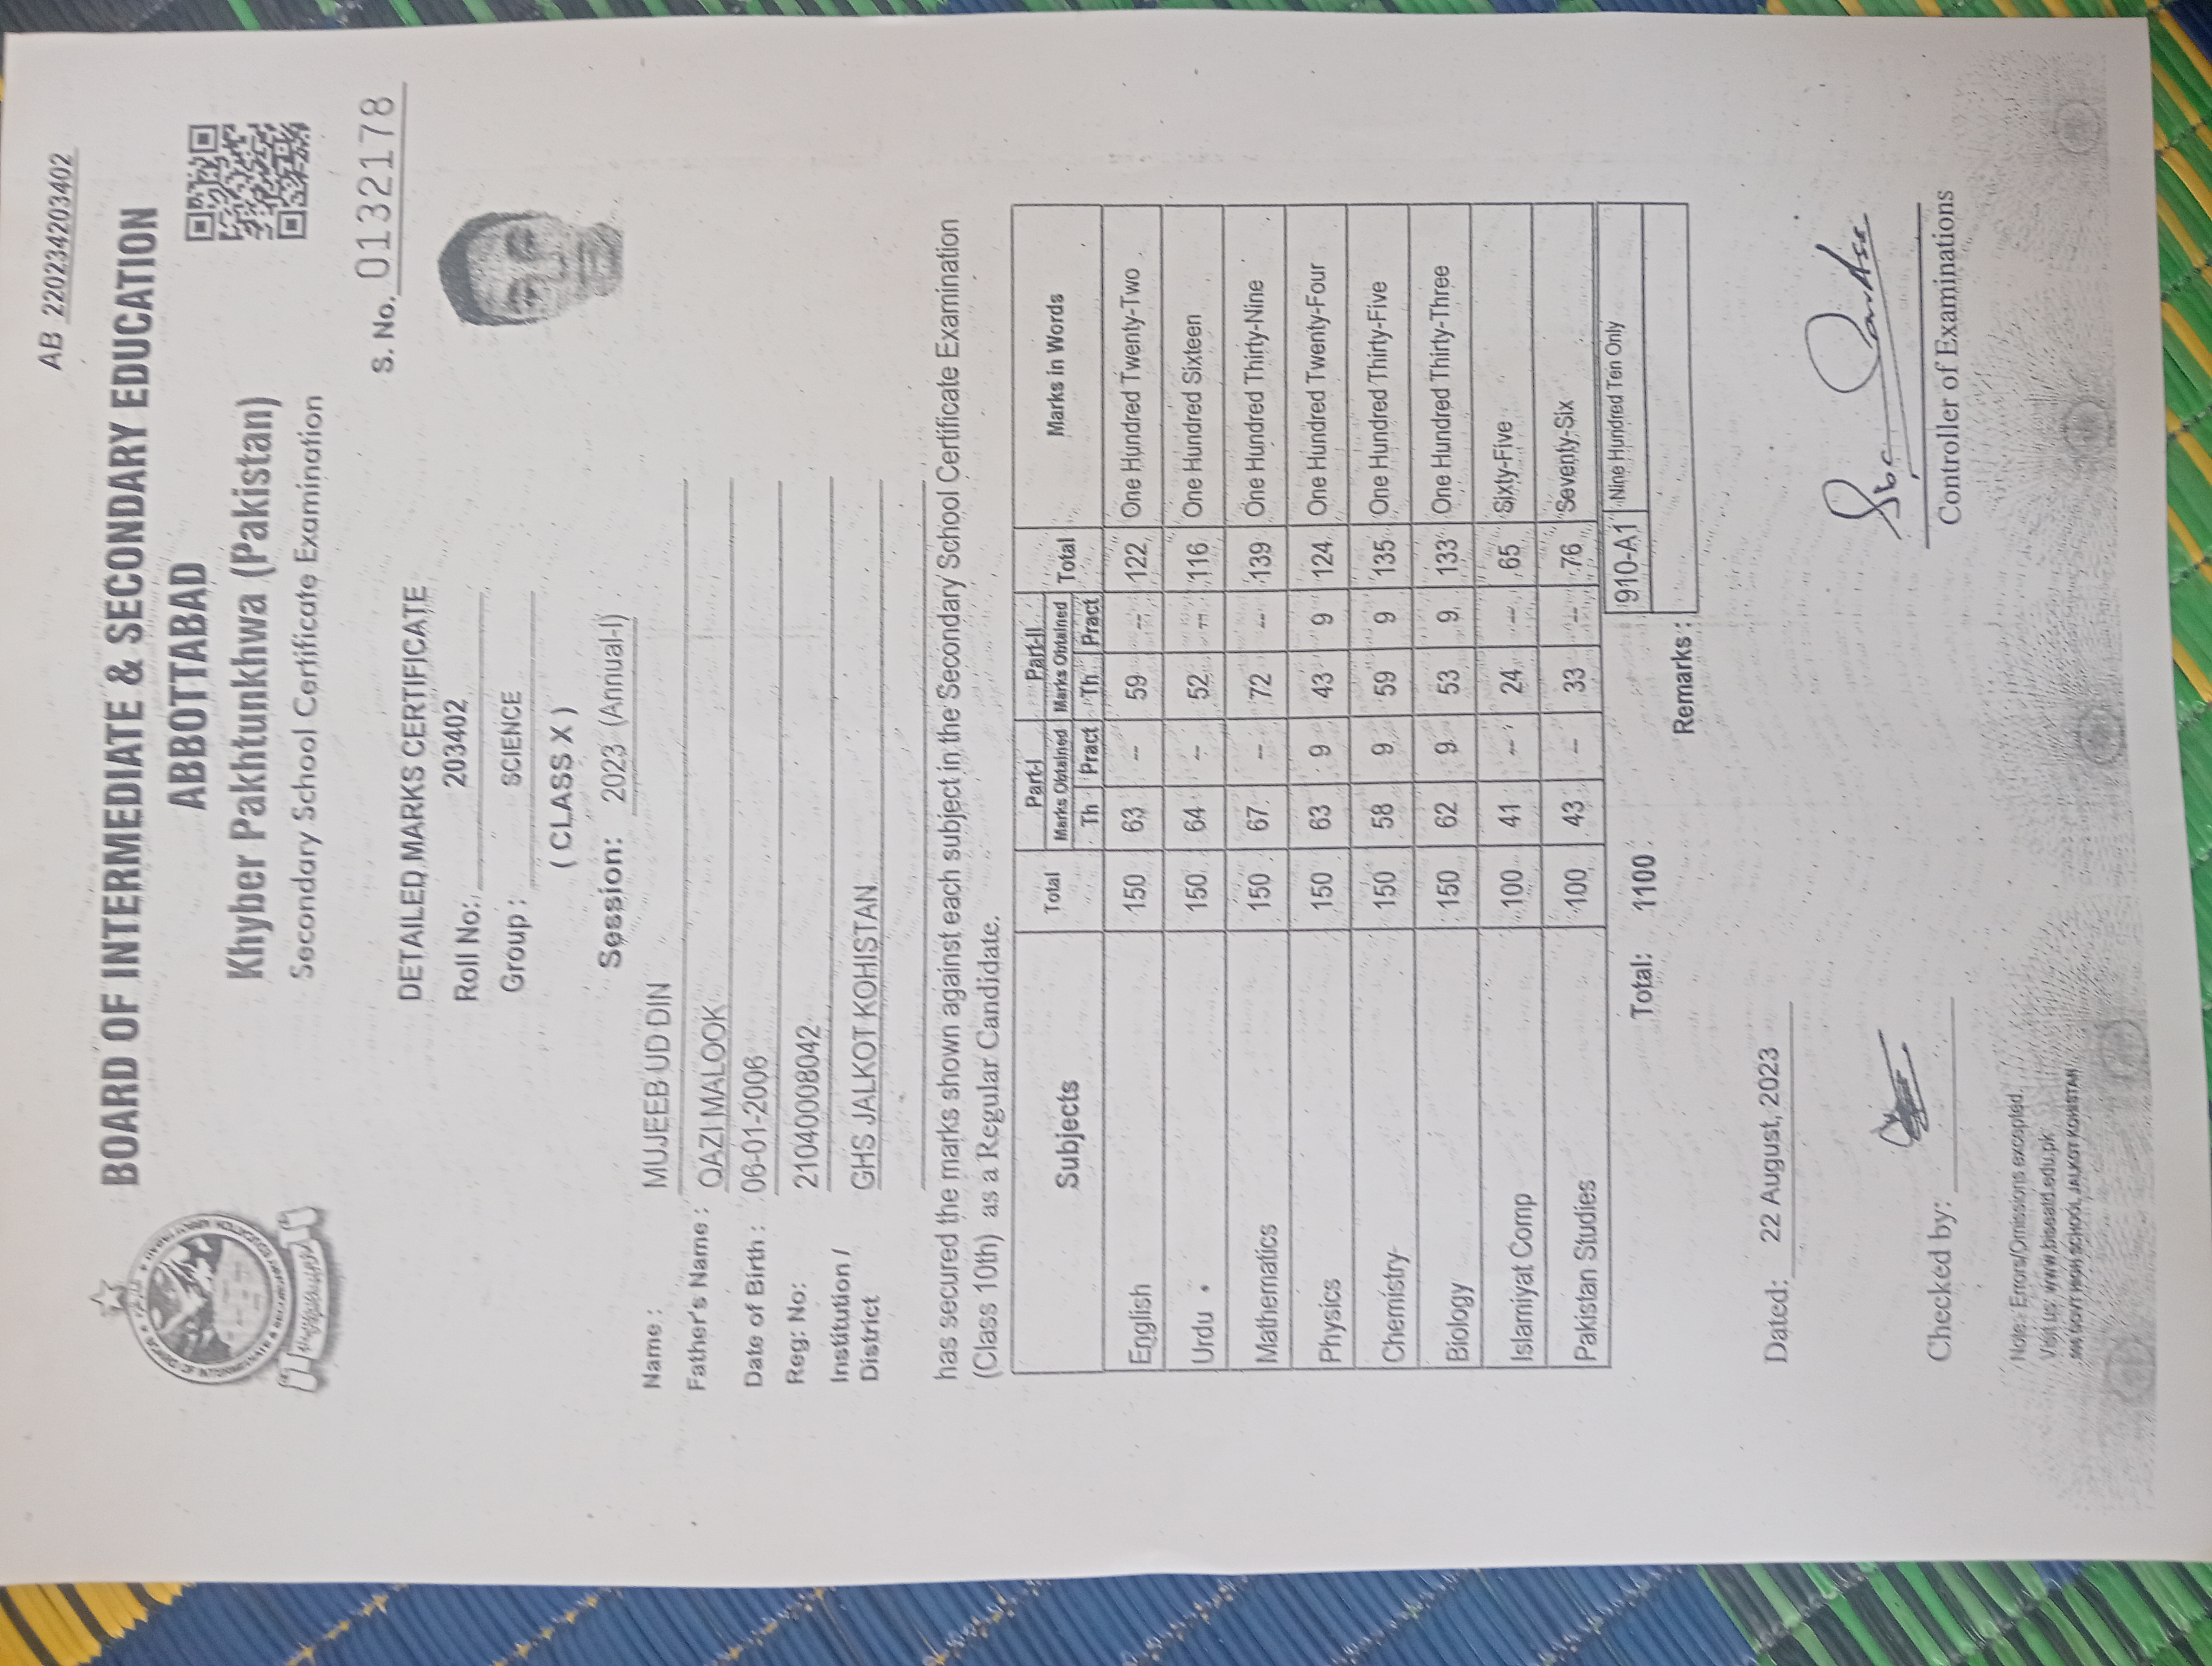 AB 220234203402
BOARD OF INTERMEDIATE & SECONDARY EDUCATION
ABBOTTABAD
Khyber Pakhtunkhwa (Pakistan)
Secondary School Certificate Examination
S. No. 0132178
DETAILED MARKS CERTIFICATE
Roll No: 203402
Group : SCIENCE
( CLASS X )
Session: 2023 (Annual-I)
Name : MUJEEB UD DIN
Father's Name : QAZI MALOOK
Date of Birth : 06-01-2006
Reg: No: 2104000080​42
Institution / District GHS JALKOT KOHISTAN
has secured the marks shown against each subject in the Secondary School Certificate Examination
(Class 10th) as a Regular Candidate.
Subjects Total Part-I Marks Obtained Th Pract Part-II Marks Obtained Th Pract Total Marks in Words
English 150 63 -- 59 -- 122 One Hundred Twenty-Two
Urdu 150 64 -- 52 -- 116 One Hundred Sixteen
Mathematics 150 67 -- 72 -- 139 One Hundred Thirty-Nine
Physics 150 63 9 43 9 124 One Hundred Twenty-Four
Chemistry 150 58 9 59 9 135 One Hundred Thirty-Five
Biology 150 62 9 53 9 133 One Hundred Thirty-Three
Islamiyat Comp 100 41 -- 24 -- 65 Sixty-Five
Pakistan Studies 100 43 -- 33 -- 76 Seventy-Six
Total: 1100 910-A1 Nine Hundred Ten Only
Remarks :
Dated: 22 August, 2023
Checked by:
Controller of Examinations
Note: Errors/Omissions excepted.
Visit us: www.biseatd.edu.pk
GOVT HIGH SCHOOL JALKOT KOHISTAN